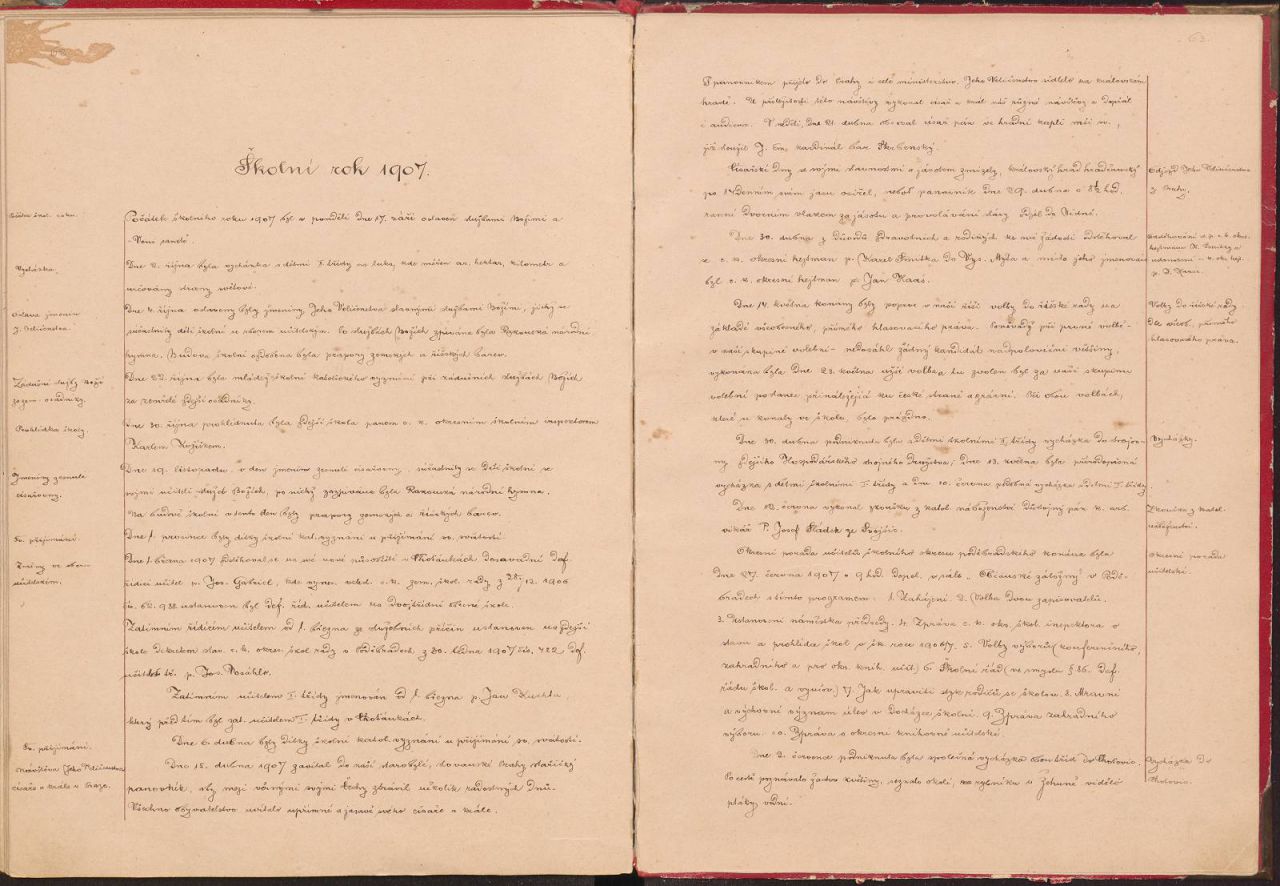 Školní rok 1907.
Počátek školního roku 1907 byl v pondělí dne 17. září oslaven službami Božími a
„Veni sancte“.
Vycházka.
Dne 2. října byla vycházka s dětmi I. třídy na luka, kde měřen ar, hektar, kilometr a
určovány strany světové.
Oslava jmenin
J. Veličenstva.
Dne 4. října oslaveny byly jmeniny Jeho Veličenstva slavnými službami Božími, jichž se
súčastnily děti školní se sborem učitelským. Po službách Božích zpívána byla Rakouská národní
hymna. Budova školní ozdobena byla prapory zemských a říšských barev.
Zádušní služby Boží
za zem. osadníky.
Dne 22. října byla mládež školní katolického vyznání při zádušních službách Božích
za zemřelé zdejší osadníky.
Prohlídka školy.
Dne 30. října prohlédnuta byla zdejší škola panem c. k. okresním školním inspektorem
Karlem Kožíškem.
Jmeniny zesnulé
císařovny.
Dne 19. listopadu, v den jmenin zesnulé císařovny, súčastnily se děti školní se
svými učiteli služeb Božích, po nichž zazpívána byla Rakouská národní hymna.
Na budově školní v tento den byly prapory zemských a říšských barev.
Sv. přijímání.
Dne 1. prosince byly dítky školní kat. vyznání u přijímání sv. svátostí.
Změny ve sboru
učitelském.
Dne 1. března 1907 odstěhoval se na své nové působiště v Chotánkách dosavadní def.
řídící učitel p. Jos. Gabriel, kde vynes. vel. c. k. zem. škol. rady z 28/12. 1906
čís. 62.938 ustanoven byl def. říd. učitelem na dvojtřídní obecné škole.
Zatímním řídícím učitelem od 1. března ze služebních příčin ustanoven na zdejší
škole dekretem slav. c. k. okres. škol. rady v Poděbradech z 20. ledna 1907 čís. 422 def.
učitel tř. p. Jos.
Zatímním učitelem I. třídy jmenován od 1. března p. Jan Kuchta,
který před tím byl zat. učitelem I. třídy v Chotánkách.
Sv. přijímání.
Dne 6. dubna byly dítky školní katol. vyznání u přijímání sv. svátostí.
Návštěva Jeho Veličenstva
císaře a krále v Praze.
Dne 15. dubna 1907 zavítal do naší starobylé, slovanské Prahy stařičký
panovník, aby mezi věrnými svými Čechy ztrávil několik radostných dnů.
Všechno obyvatelstvo uvítalo upřímně a jásavě svého císaře a krále.
63.
S panovníkem přijelo do Prahy i celé ministerstvo. Jeho Veličenstvo sídlelo na královském
hradě. U příležitosti této návštěvy vykonal císař a král náš různé návštěvy a dopřál
i audiencí. V neděli, dne 21. dubna obcoval císař pán ve hradní kapli mši sv.,
již sloužil J. Em. kardinál bar. Skrbenský.
Odjezd Jeho Veličenstva
z Prahy.
Císařské dny se svými slavnostmi a jásotem zmizely, královský hrad hradčanský
po 14denním svém jasu osiřel, neboť panovník dne 29. dubna o 8½ hod.
ranní dvorním vlakem za jásotu a provolávání slávy odjel do Vídně.
Dne 30. dubna z důvodů zdravotních a rodinných ke své žádosti odstěhoval
se c. k. okresní hejtman p. Karel Smitka do Vys. Mýta a místo jeho jmenován
byl c. k. okresní hejtman p. Jan Haas.
Volby do říšské rady
dle všeob. přímého
hlasovacího práva.
Dne 14. května konány byly poprvé v naší říši volby do říšské rady na
základě všeobecného, přímého hlasovacího práva. Poněvadž při první volbě
v naší skupině volební nedosáhl žádný kandidát nadpoloviční většiny,
vykonána byla dne 23. května užší volba a tu zvolen byl za naši skupinu
volební poslanec přináležející ku české straně agrární. Při obou volbách,
které se konaly ve škole, bylo prázdno.
Vycházky.
Dne 30. dubna podniknuta byla s dětmi školními I. třídy vycházka do strojov-
ny zdejšího Hospodářského strojního družstva; dne 13. května byla přírodopisná
vycházka s dětmi školními I. třídy a dne 10. června podobná vycházka s dětmi I. třídy.
Zkouška z katol.
náboženství.
Dne 12. června vykonal zkoušku z katol. náboženství důstojný pán k. arb.
vikář P. Josef Sládek ze
Okresní porada
učitelská.
Okresní porada učitelů školního okresu poděbradského konána byla
dne 27. června 1907 o 9 hod. dopol. v sále „Občanské záložny“ v Podě-
bradech s tímto programem: 1. Zahájení. 2. Volba dvou zapisovatelů.
3. Ustanovení náměstka předsedy. 4. Zpráva c. k. okr. škol. inspektora o
stavu a prohlídce škol v šk. roce 1906/7. 5. Volby výborů (konferenčního,
zahradního a pro okr. knih. učit.) 6. Školní řád (ve smyslu § 86. def.
řádu škol. a vyuč.) 7. Jak upraviti styk rodičů se školou. 8. Mravní
a výchovný význam úlev v docházce školní. 9. Zpráva zahradního
výboru. 10. Zpráva o okresní knihovně učitelské.
Vycházka do
Dne 2. července podniknuta byla společná vycházka obou tříd do
Po cestě poznáváno žactvo květiny, seznalo okolí, na rybníku u Žehuně vidělo
ptáky vodní.